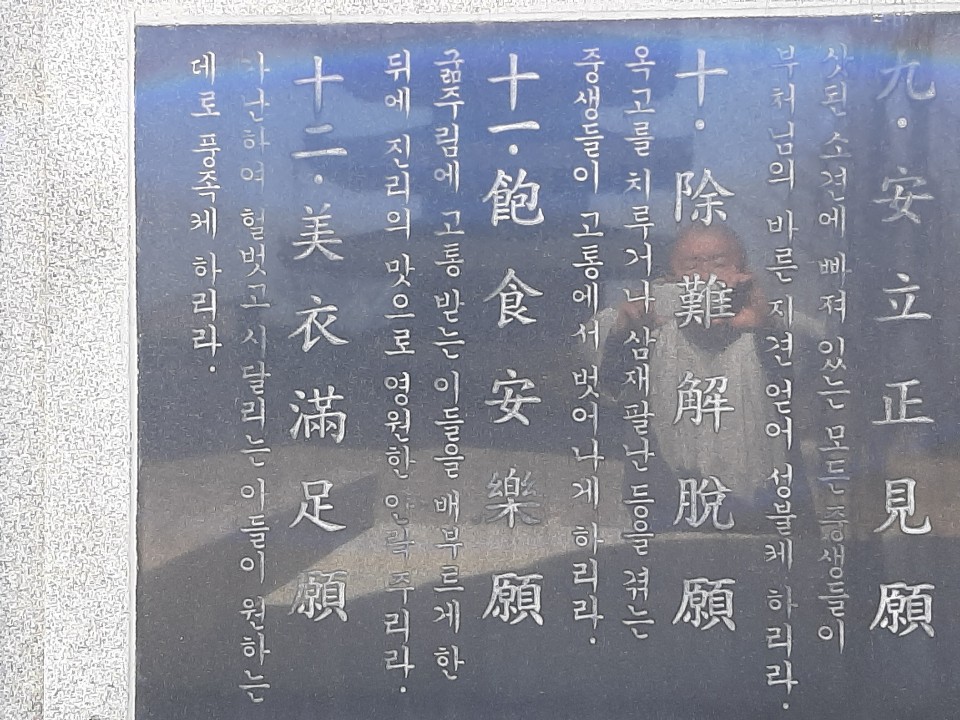 九. 安立正見願
삿된 소견에 빠져 있는 모든 중생들이
부처님의 바른 지견 얻어 성불케 하리라.
十. 除難解脫願
옥고를 치루거나 삼재팔난 등을 겪는
중생들이 고통에서 벗어나게 하리라.
十一. 飽食安樂願
굶주림에 고통 받는 이들을 배부르게 한
뒤에 진리의 맛으로 영원한 안락 주리라.
十二. 美衣滿足願
가난하여 헐벗고 시달리는 이들이 원하는
데로 풍족케 하리라.